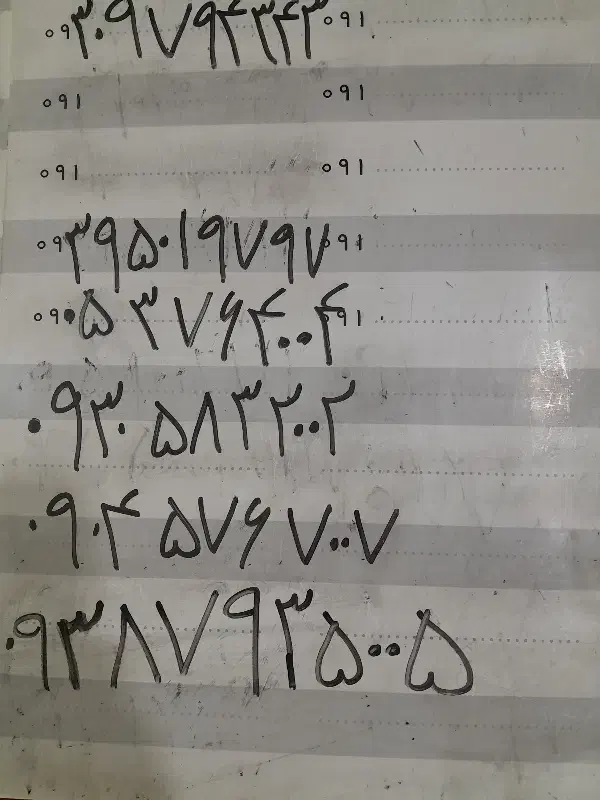 ۰۹۳۰۹۷۹۴۳۴۳ ۰۹۱
۰۹۱ ۰۹۱
۰۹۱ ۰۹۱
۰۹۳۹۵۰۱۹۷۹۷ ۰۹۱
۰۹۰۵۳۷۶۴۰۰۴ ۰۹۱
۰۹۳۰ ۵۸۳ ۲۰۰۲
۰۹۰۴ ۵۷۶ ۷۰۰۷
۰۹۳۸۷۹۳۵۰۰۵